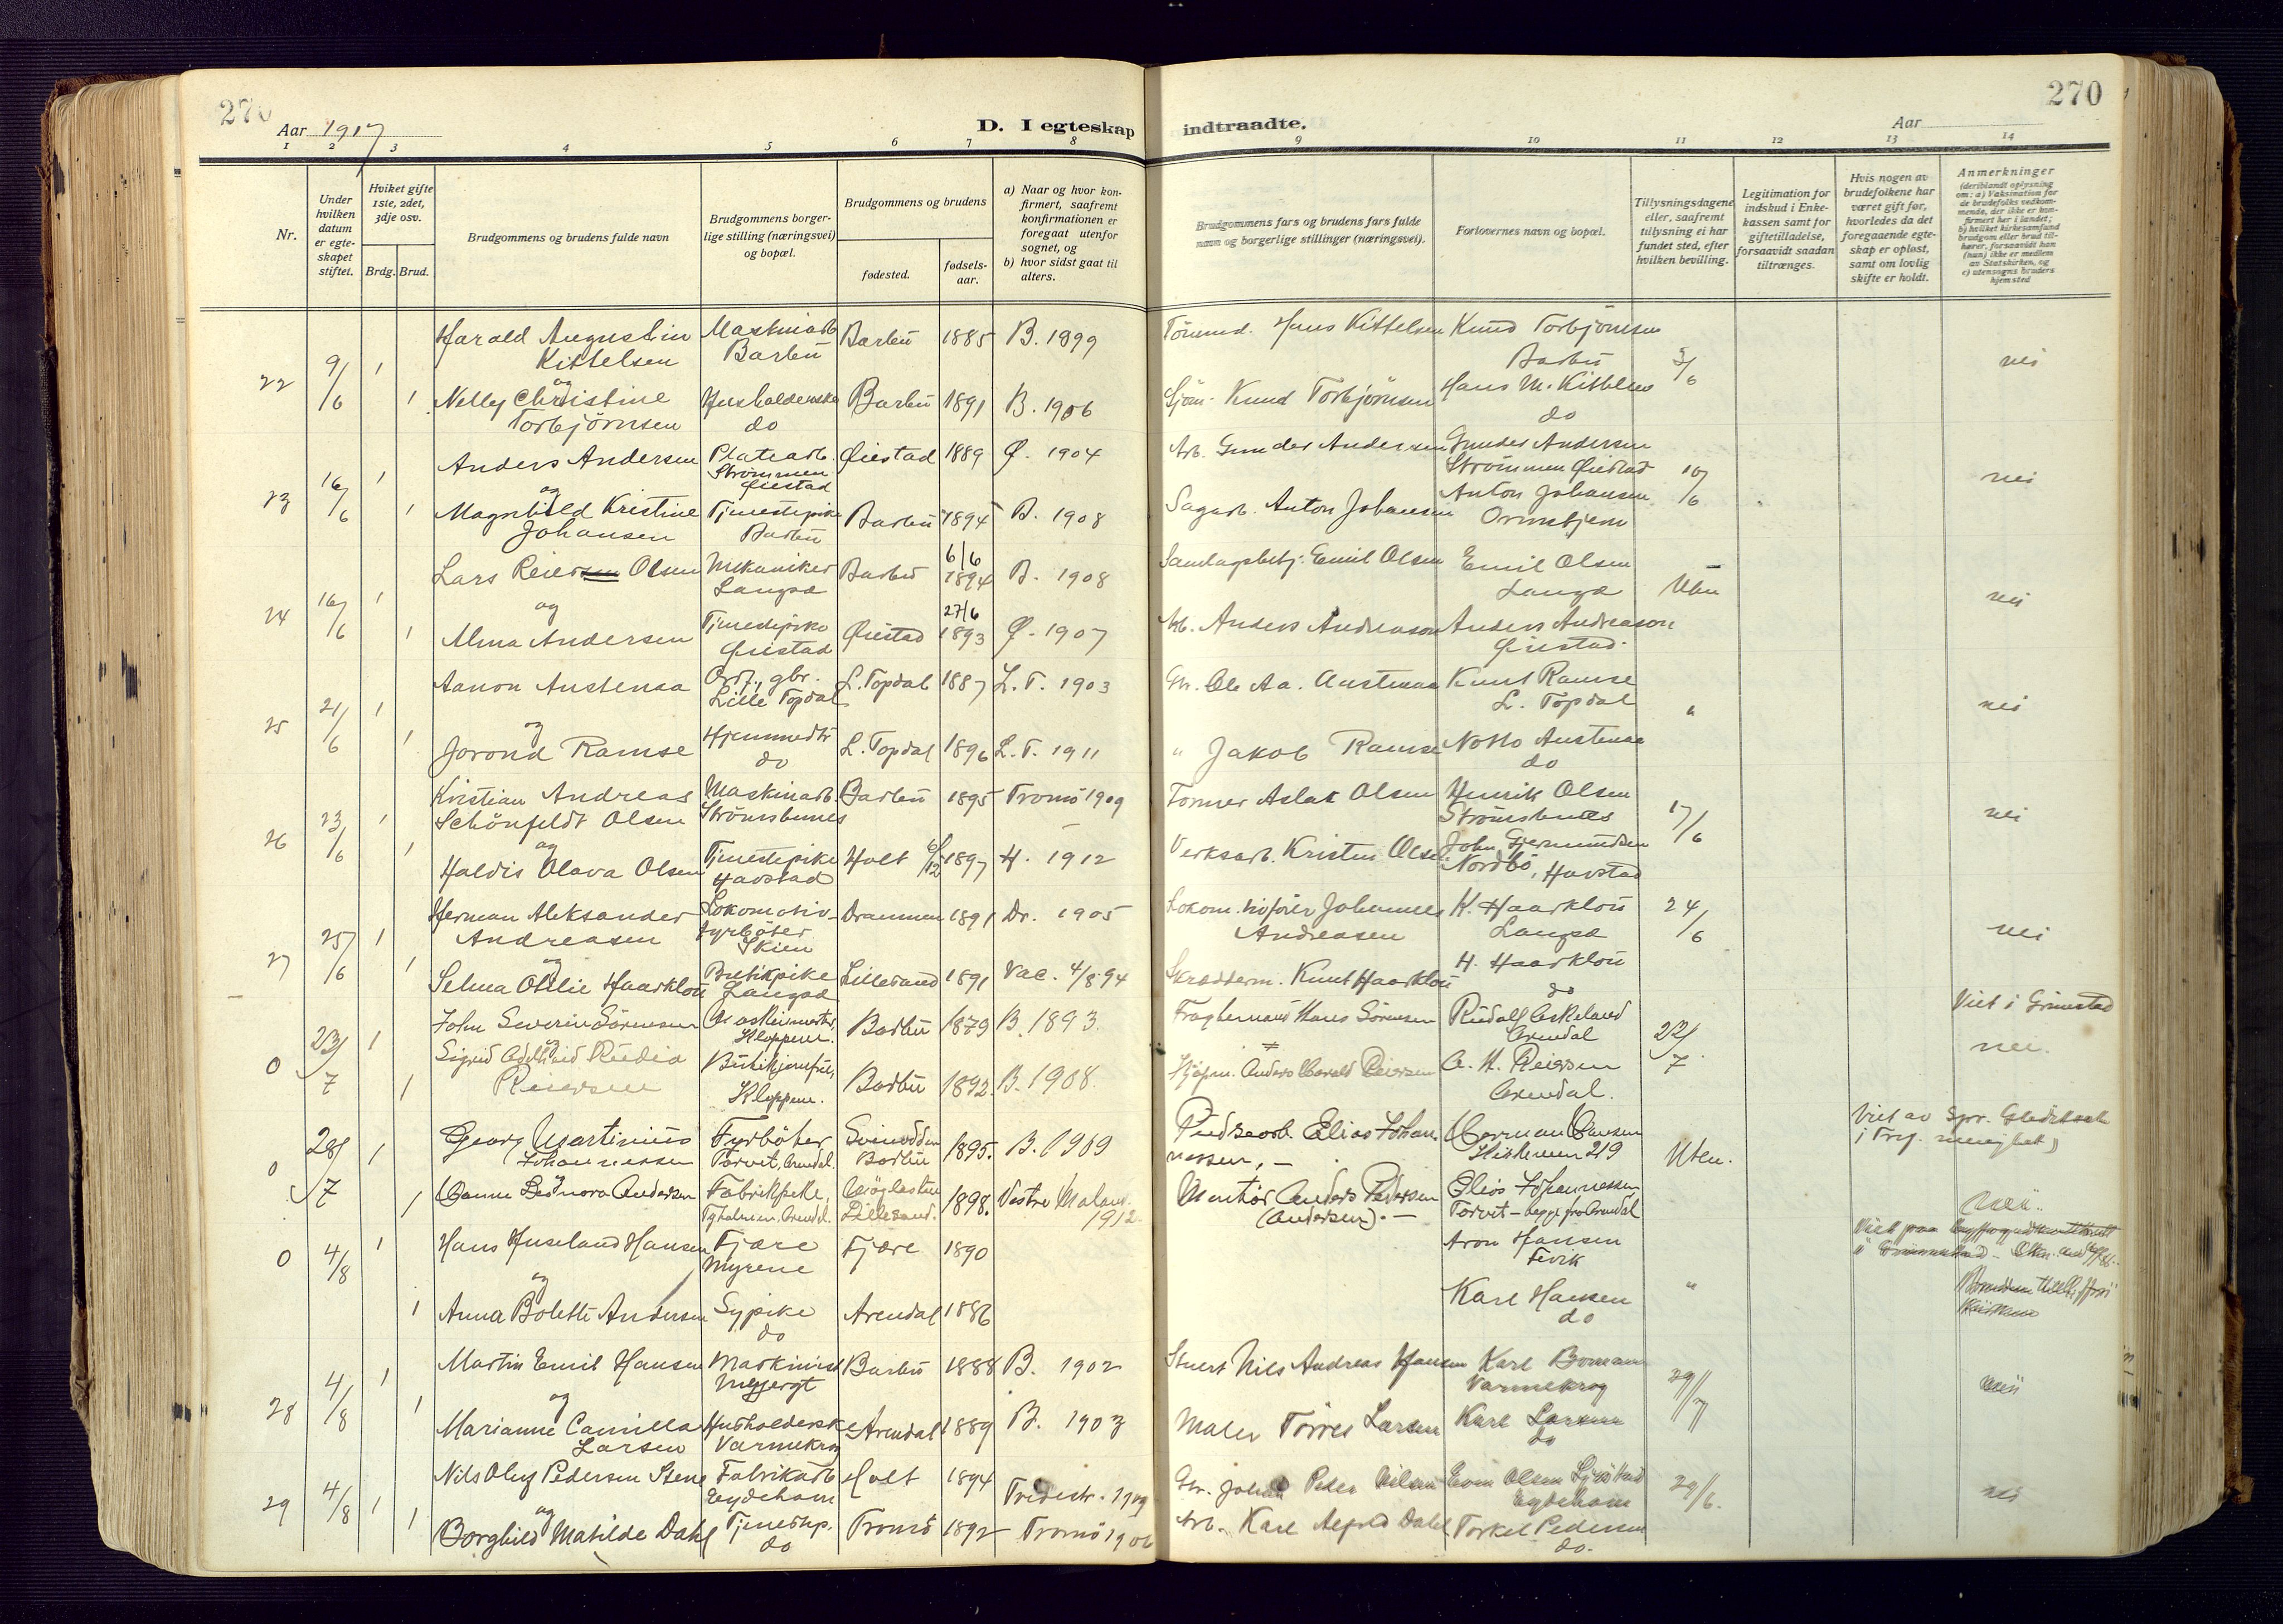 270
Aar 1917
D. I egteskap
1 2 3 4 5 6 7 8
Nr.
Under hvilken datum er egteskapet stiftet.
Hviket gifte 1ste, 2det, 3dje osv.
Brdg. Brud.
Brudgommens og brudens fulde navn
Brudgommens borgerlige stilling (næringsvei) og bopæl.
Brudgommens og brudens
fødested.
fødselsaar.
a) Naar og hvor konfirmert, saafremt konfirmationen er foregaat utenfor sognet, og
b) hvor sidst gaat til alters.
22 9/6 1 Harald Augustin Maskinarb Barbu 1885 B. 1899
Kittelsen Barbu
og
1 Nelly Christine Husholderske Barbu 1891 B. 1906
Torbjörnsen do
23 16/6 1 Anders Andersen Platearb. Øiestad 1889 Ø. 1904
Strømmen
Øiestad
og
1 Magnhild Kristine Tjenestepike Barbu 1894 B. 1908
Johansen Barbu
24 16/6 1 Lars Reiersen Olsen Mekaniker Barbu 6/6 1894 B. 1908
Langsæ
og
1 Alma Andersen Tjenestepike Øiestad 27/6 1893 Ø. 1907
Øiestad
25 21/6 1 Aanon Austenaa gbr. L. Topdal 1887 L. T. 1903
Lille Topdal
og
1 Jorond Ramse Hjemmedtr L. Topdal 1896 L. T. 1911
do
26 23/6 1 Kristian Andreas Maskinarb. Barbu 1895 Tromö 1909
Schönfeldt Olsen Strömsbunes
og
1 Haldis Olava Olsen Tjenestepike Holt 6/12 1897 H. 1912
Havstad
27 25/6 1 Herman Aleksander Lokomotiv- Drammen 1891 Dr. 1905
Andreasen fyrböter
Skien
og
1 Selma Otilie Haarklou Butikpike Lillesand 1891 Vac. 4/8 94
Langsæ
0 23/7 1 John Severin Sörensen Maskinmester, Barbu 1879 B. 1893.
Kloppene.
og
1 Sigrid Adelheid Rudia
Reiersen Kloppene. Barbu 1892. B. 1908.
0 28/7 1 Georg Martinius Fyrböter Svinodden 1895. B. 1909
Johannessen Torvet, Arendal. Barbu
og
1 Hanne Leonora Andersen Fabrikpike, 1898. Vestre Moland
Tyholmen, Arendal. Lillesand. 1912.
0 4/8 1 Hans Huseland Hansen Fjære Fjære 1890
Myrene
og
1 Anna Bolette Andersen Sypike Arendal 1886
do
28 4/8 1 Martin Emil Hansen Maskinist Barbu 1888 B. 1902
og
1 Marianne Camilla Husholdersk Arendal 1889 B. 1903
Larsen Varmekrog
29 4/8 1 Nils Oluf Pedersen Stene Fabrikarb Holt 1894
Eydehavn
og
1 Borghild Matilde Dahl Tjenestep. Tromö 1892 Tromö 1906
do
270
indtraadte.
Aar
9 10 11 12 13 14
Brudgommens fars og brudens fars fulde navn og borgerlige stillinger (næringsvei).
Forlovernes navn og bopæl.
Tillysningsdagene eller, saafremt tillysning ei har fundet sted, efter hvilken bevilling.
Legitimation for indskud i Enkekassen samt for giftetilladelse, forsaavidt saadan tiltrænges.
Hvis nogen av brudefolkene har været gift før, hvorledes da det foregaaende egteskap er opløst, samt om lovlig skifte er holdt.
Anmerkninger
(deriblandt oplysning om: a) Vaksination for de brudefolks vedkommende, der ikke er konfirmert her i landet; b) hvilket kirkesamfund brudgom eller brud tilhører, forsaavidt han (hun) ikke er medlem av Statskirken, og c) utensogns bruders hjemsted
Hans Kittelsen Knud Torbjörnsen
Barbu 3/6 nei
Sjöm. Knud Torbjörnsen Hans M. Kittelsen
do
Arb. Gunder Andersen Gunder Andersen
Strömmen Øiestad 10/6 nei
Sagarb. Anton Johansen Anton Johansen
Emil Olsen Emil Olsen
Langsæ Uten nei
Arb. Anders Andreason Anders Andreason
Øiestad.
Ole Aa. Austenaa Knut Ramse
L. Topdal " nei
" Jakob Ramse Notto Austenaa
do
Former Aslak Olsen Henrik Olsen
Strömsbunes 17/6 nei
Verksarb. Kristen Olsen John Gjermundsen
Nordbö, Havstad
Johannes K. Haarklou 24/6
Andreasen Langsæ nei
Skrædderm. Knut Haarklou H. Haarklou
do
Hans Sörensen Rudolf Askeland Viet i Grimstad
Arendal 22/7 nei.
Anders Harald Reiersen A. H. Reiersen
Arendal.
Elias Johan- Herman Hansen Viet av Spr.
nessen, - 219 Uten. i Frej. menighet)
Anders Pedersen Elias Johannessen
(Andersen). - Torvet - begge fra Arendal nei.
Aron Hansen
Fevik "
Karl Hansen
do
Nils Andreas Hansen Karl Bomann
Varmekrog 29/7 nei
Maler Törres Larsen Karl Larsen
do
Peder Nilsen Even Olsen
Eydehavn 29/6. nei
Arb. Karl Alfred Dahl Torkel Pedersen
do.